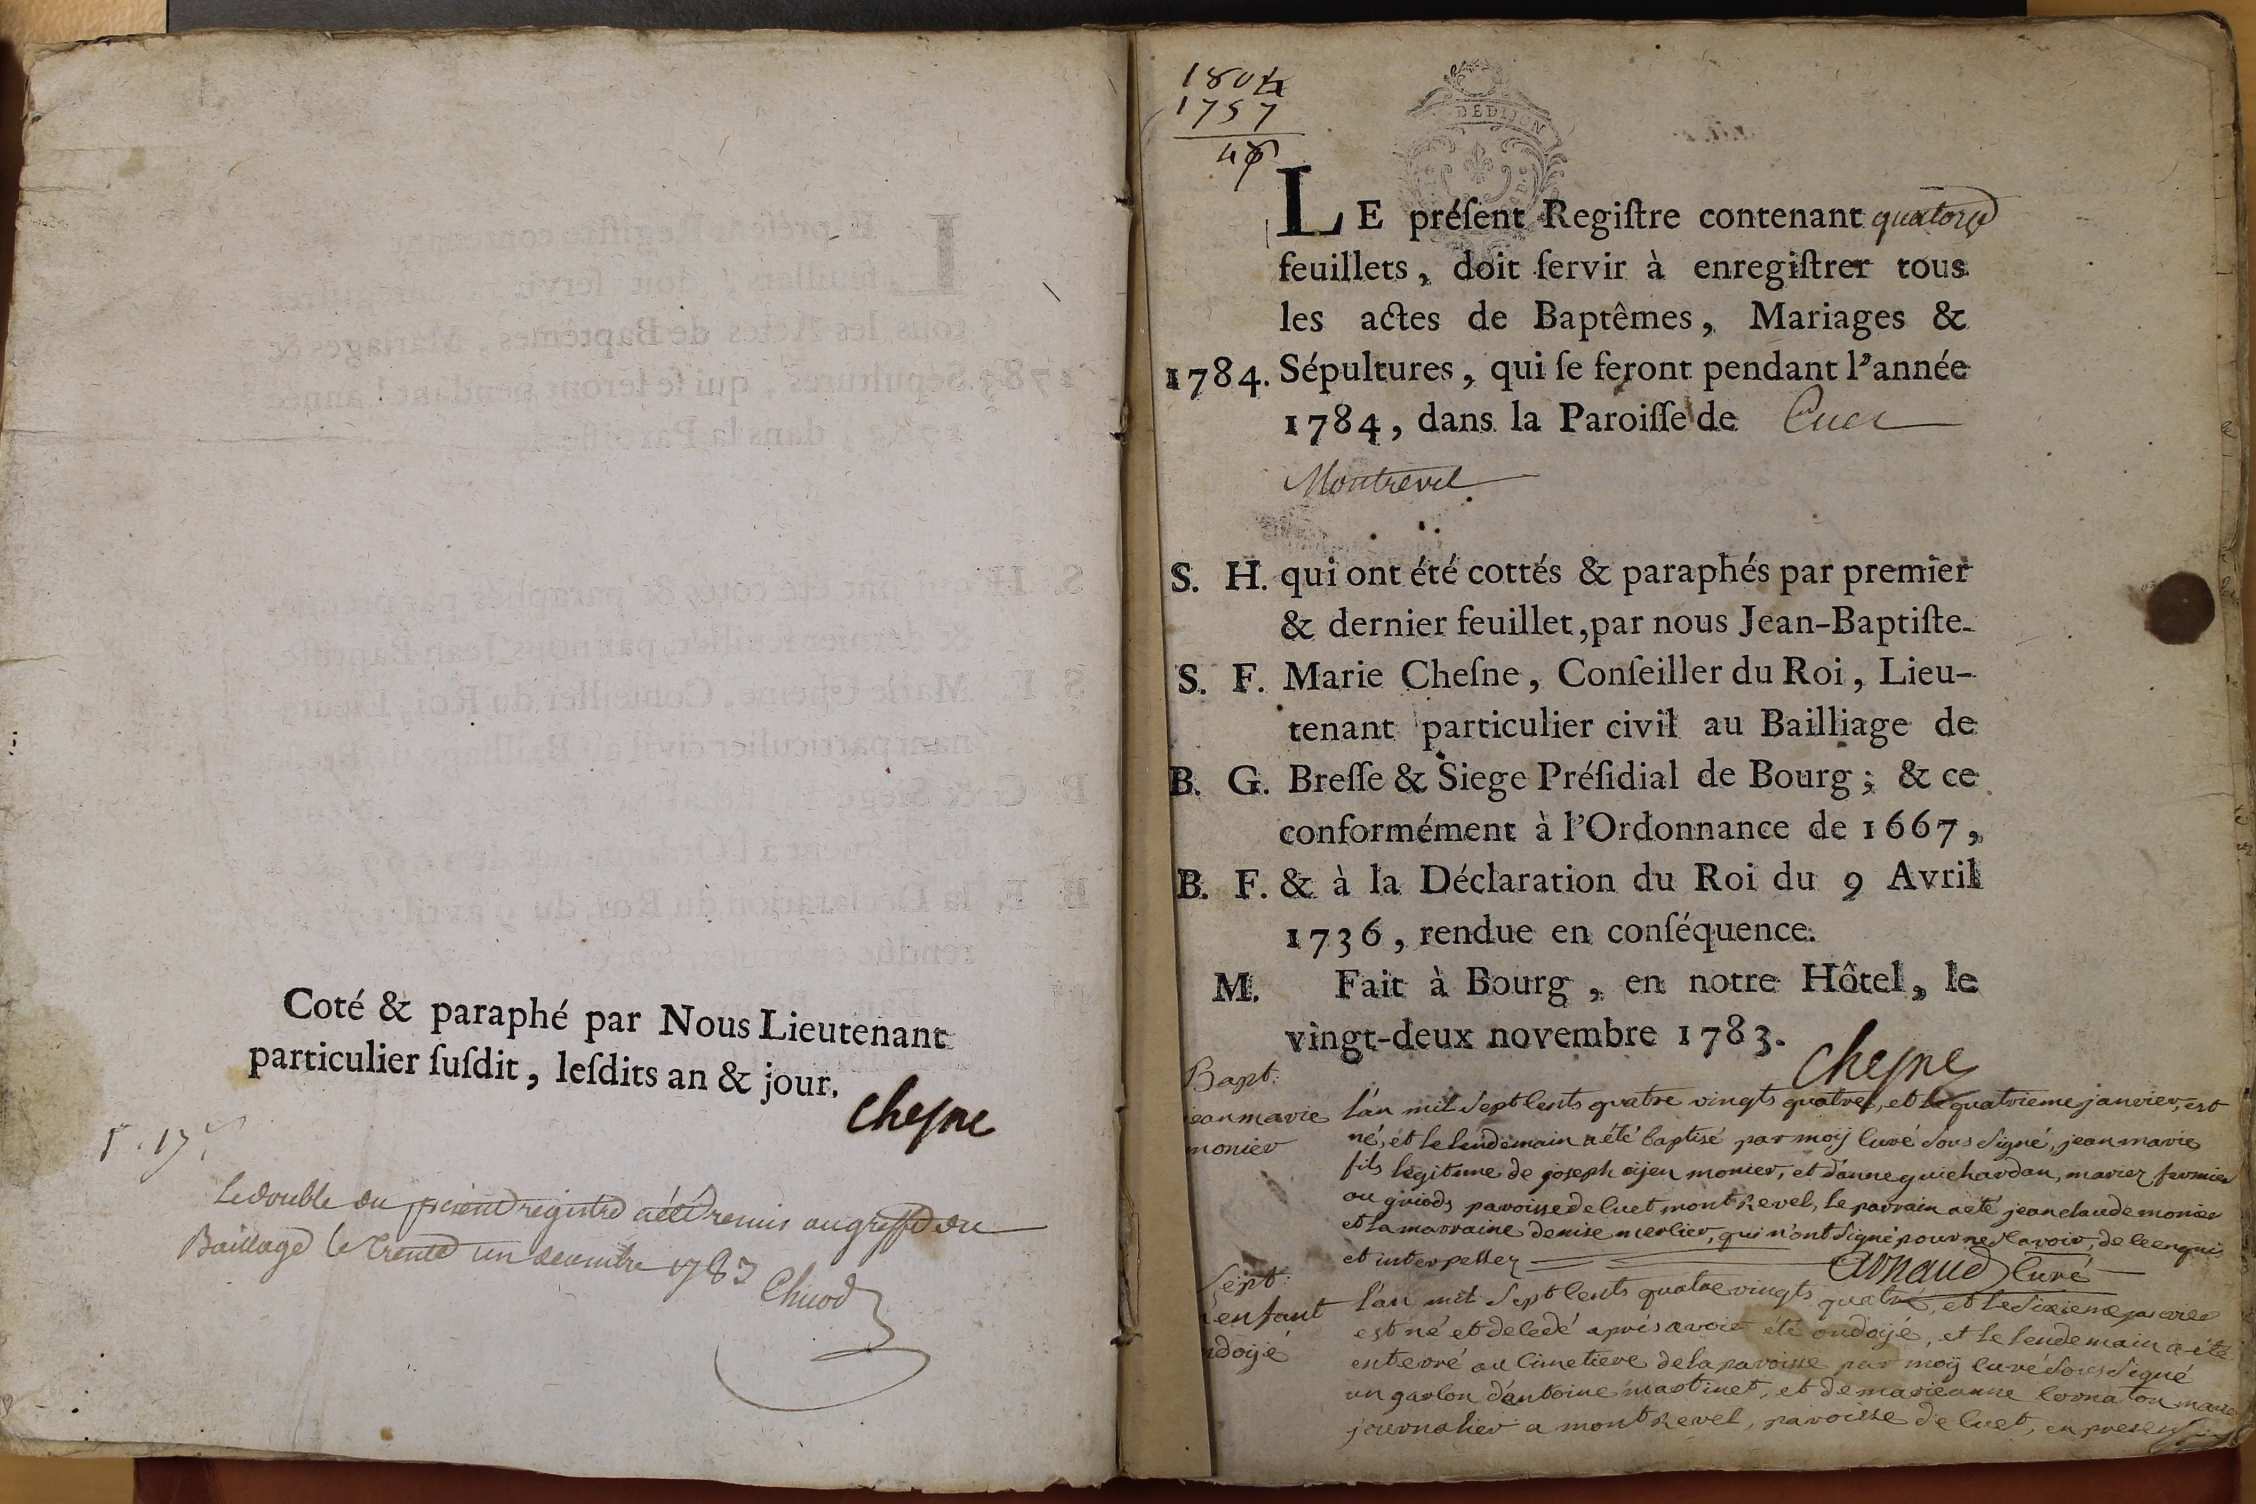 Coté & paraphé par Nous Lieutenant
particulier ſuſdit, leſdits an & jour.
Cheſne
Le double du présent registre a été remis au greffe du
Baillage le trente un decembre 1783
1804
1757
DE DIJON
LE préſent Regiſtre contenant quatorze
feuillets, doit ſervir à enregiſtrer tous
les actes de Baptêmes, Mariages &
1784. Sépultures, qui ſe feront pendant l'année
1784, dans la Paroiſſe de Cuet
Montrevel
S. H. qui ont été cottés & paraphés par premier
& dernier feuillet, par nous Jean-Baptiſte-
S. F. Marie Cheſne, Conſeiller du Roi, Lieu-
tenant particulier civil au Bailliage de
B. G. Breſſe & Siege Préſidial de Bourg; & ce
conformément à l'Ordonnance de 1667,
B. F. & à la Déclaration du Roi du 9 Avril
1736, rendue en conſéquence.
M. Fait à Bourg, en notre Hôtel, le
vingt-deux novembre 1783.
Cheſne
Bapt:
jean marie
monier
l'an mil sept cents quatre vingts quatre, et le quatrieme janvier, est
né, et le lendemain a été baptisé par moÿ curé sous signé, jean marie
fils legitime de joseph monier, et d'anne guichardan, mariez
paroisse de Cuet montrevel, le parrain a eté jean claude monier
et la marraine denise merlier, qui n'ont signé pour ne sçavoir, de ce enquis
et interpellez
Arnaud Curé
Sept:
l'enfant
ondoÿé
l'an mil sept cents quatre vingts quatre, et le sixieme janvier
est né et decedé après avoir été ondoÿé, et le lendemain a été
enterré au Cimetiere de la paroisse par moÿ curé sous signé
un garçon d'antoine martinet, et de marieanne cornaton
journalier a montrevel, paroisse de Cuet, en